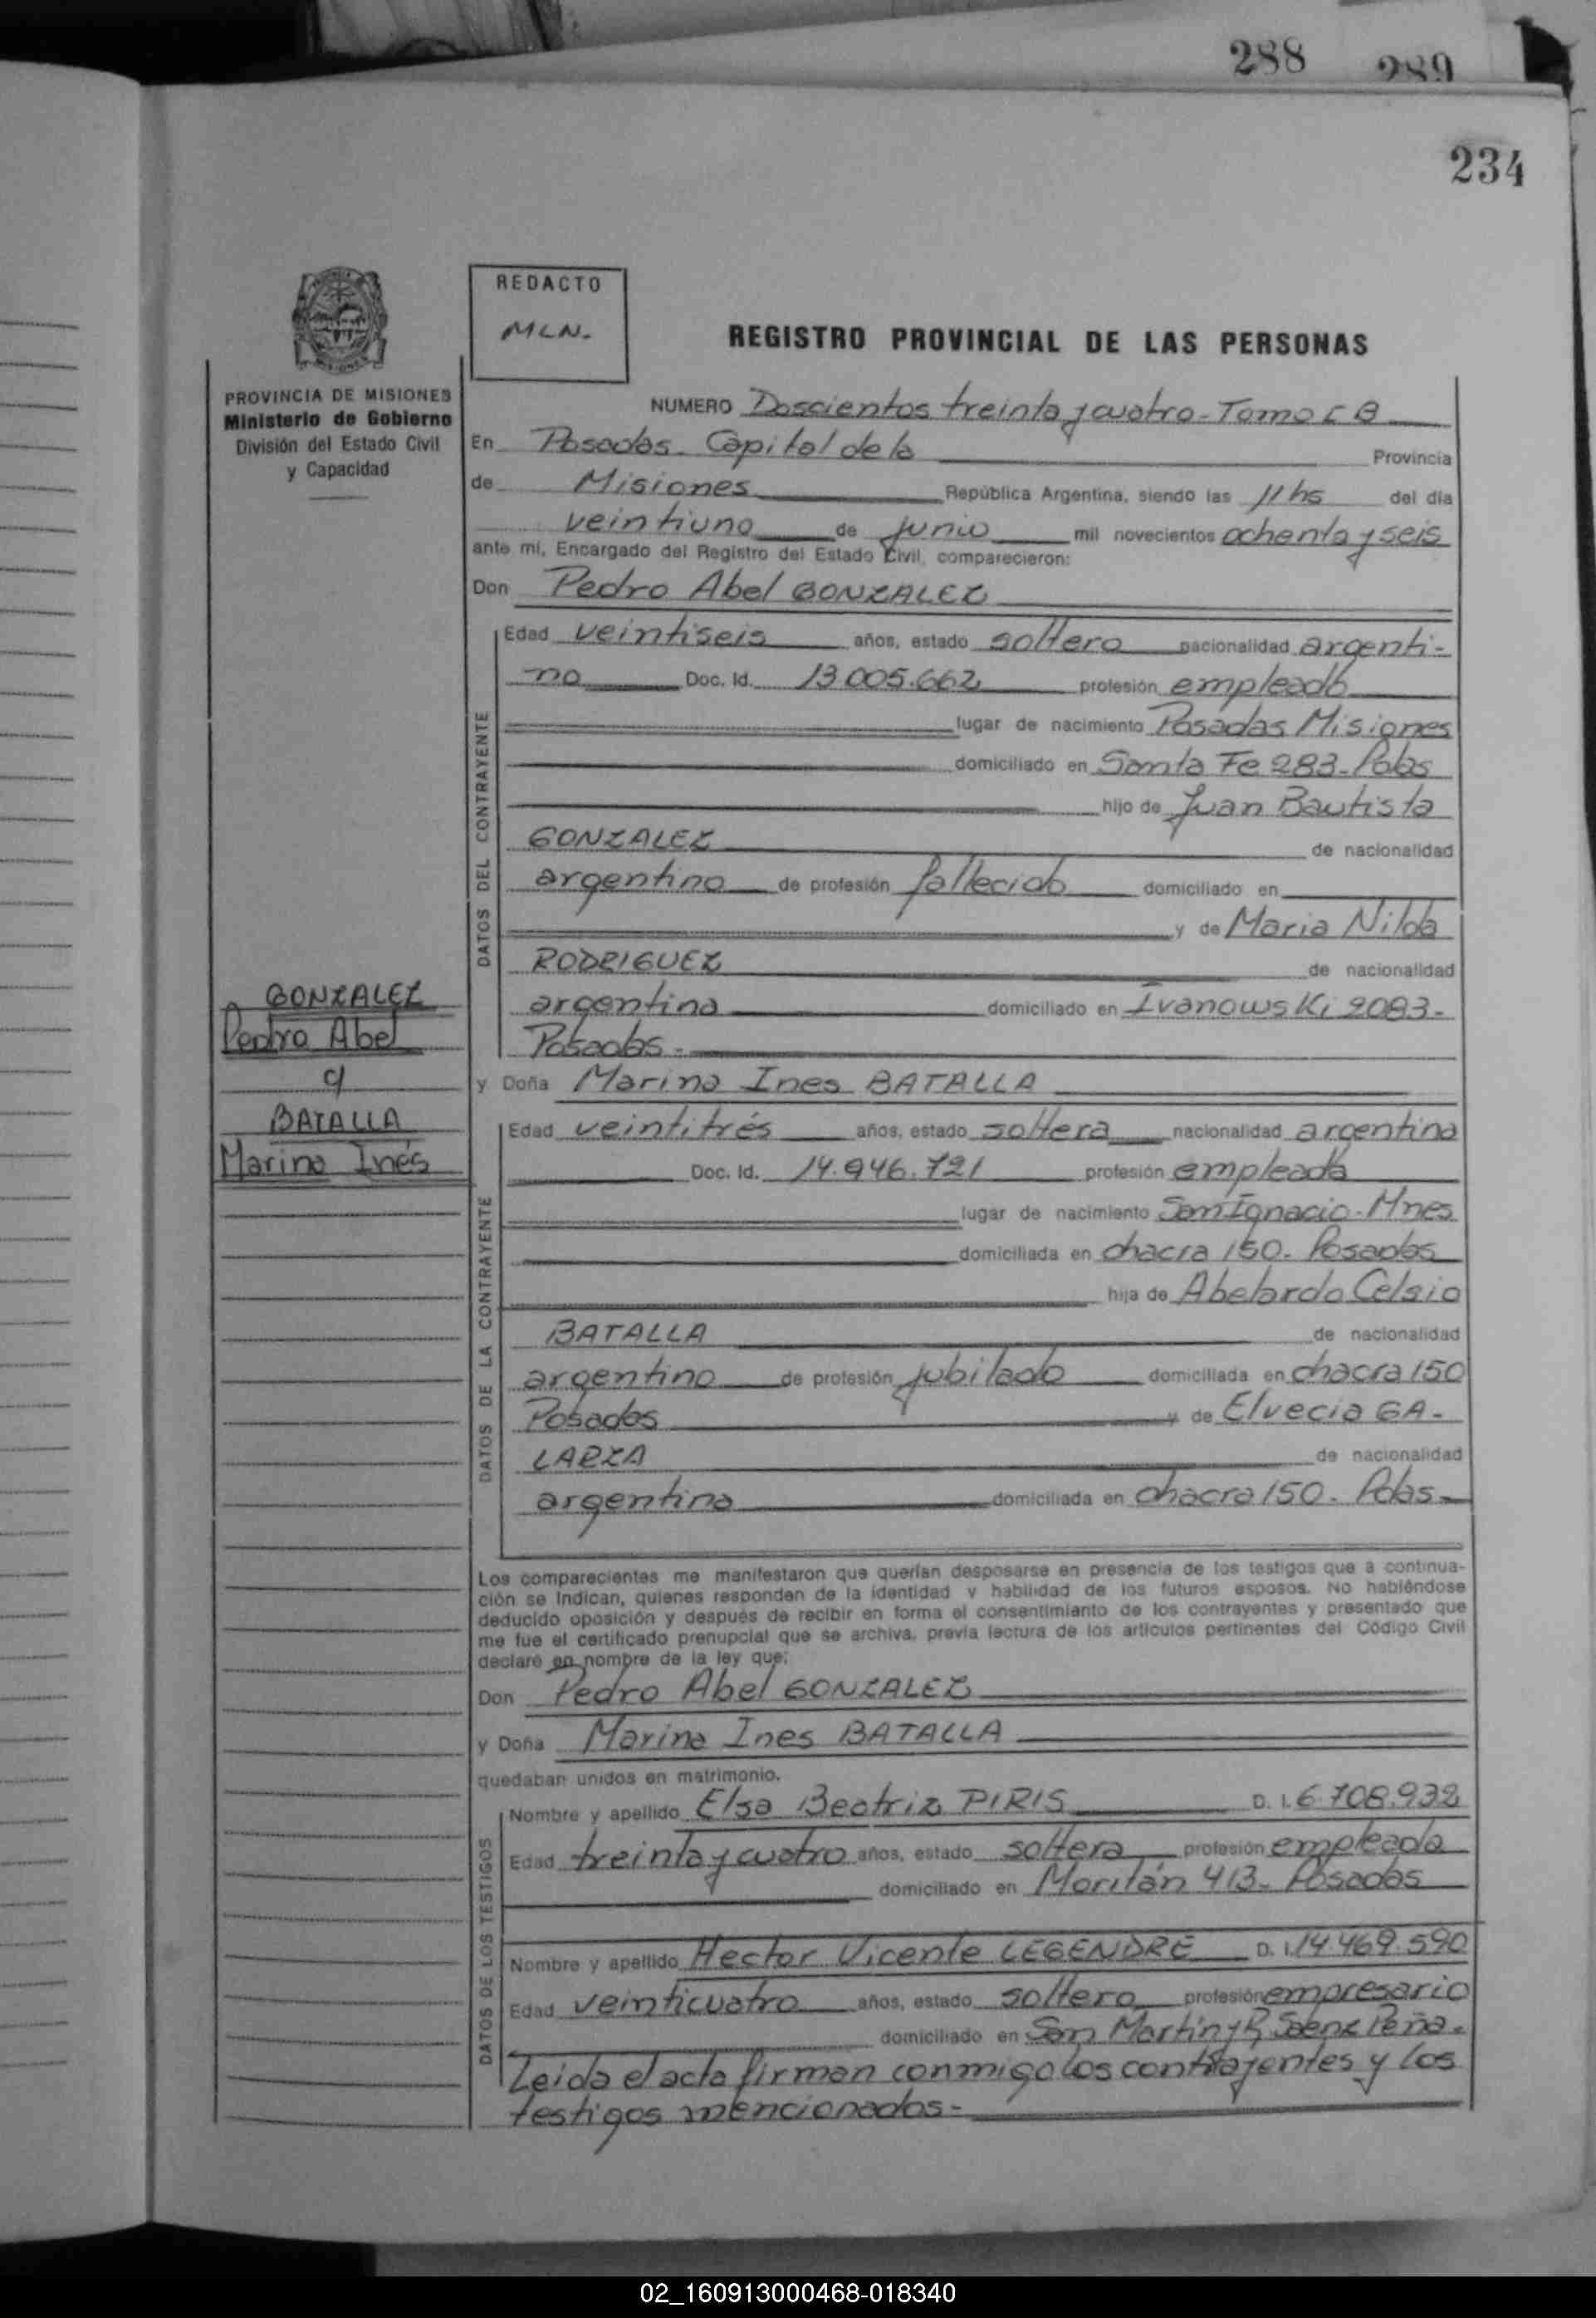 288 289
234
REDACTO
MLN.
REGISTRO PROVINCIAL DE LAS PERSONAS
PROVINCIA DE MISIONES
Ministerio de Gobierno
División del Estado Civil
y Capacidad
NUMERO Doscientos treinta y cuatro - Tomo I B
En Posadas. Capital de la Provincia
de Misiones República Argentina, siendo las 11 hs del día
veintiuno de junio mil novecientos ochenta y seis
ante mí, Encargado del Registro del Estado Civil, comparecieron:
Don Pedro Abel GONZALEZ
DATOS DEL CONTRAYENTE
Edad veintiseis años, estado soltero nacionalidad argenti-
no Doc. Id. 13.005.662 profesión empleado
lugar de nacimiento Posadas Misiones
domiciliado en Santa Fe 283 - Pdas
hijo de Juan Bautista
GONZALEZ de nacionalidad
argentino de profesión fallecido domiciliado en
y de Maria Nilda
RODRIGUEZ de nacionalidad
argentina domiciliado en Ivanowski 2083 -
Posadas -
GONZALEZ
Pedro Abel
c/
BATALLA
Marina Inés
y Doña Marina Ines BATALLA
DATOS DE LA CONTRAYENTE
Edad veintitrés años, estado soltera nacionalidad argentina
Doc. Id. 14.946.721 profesión empleada
lugar de nacimiento San Ignacio - Mnes
domiciliada en chacra 150 - Posadas
hija de Abelardo Celsio
BATALLA de nacionalidad
argentino de profesión jubilado domiciliada en chacra 150
Posadas y de Elvecia GA-
LARZA de nacionalidad
argentina domiciliada en chacra 150 - Pdas -
Los comparecientes me manifestaron que querían desposarse en presencia de los testigos que a continua-
ción se indican, quienes responden de la identidad y habilidad de los futuros esposos. No habiéndose
deducido oposición y después de recibir en forma el consentimiento de los contrayentes y presentado que
me fue el certificado prenupcial que se archiva, previa lectura de los artículos pertinentes del Código Civil
declaré en nombre de la ley que:
Don Pedro Abel GONZALEZ
y Doña Marina Ines BATALLA
quedaban unidos en matrimonio.
DATOS DE LOS TESTIGOS
Nombre y apellido Elsa Beatriz PIRIS D. I. 6.708.932
Edad treinta y cuatro años, estado soltera profesión empleada
domiciliado en 413 - Posadas
Nombre y apellido Hector Vicente LEGENDRE D. I. 14.469.590
Edad veinticuatro años, estado soltero profesión empresario
domiciliado en San Martin y R. Saenz Peña -
Leida el acta firman conmigo los contrayentes y los
testigos mencionados -
02_160913000468-018340